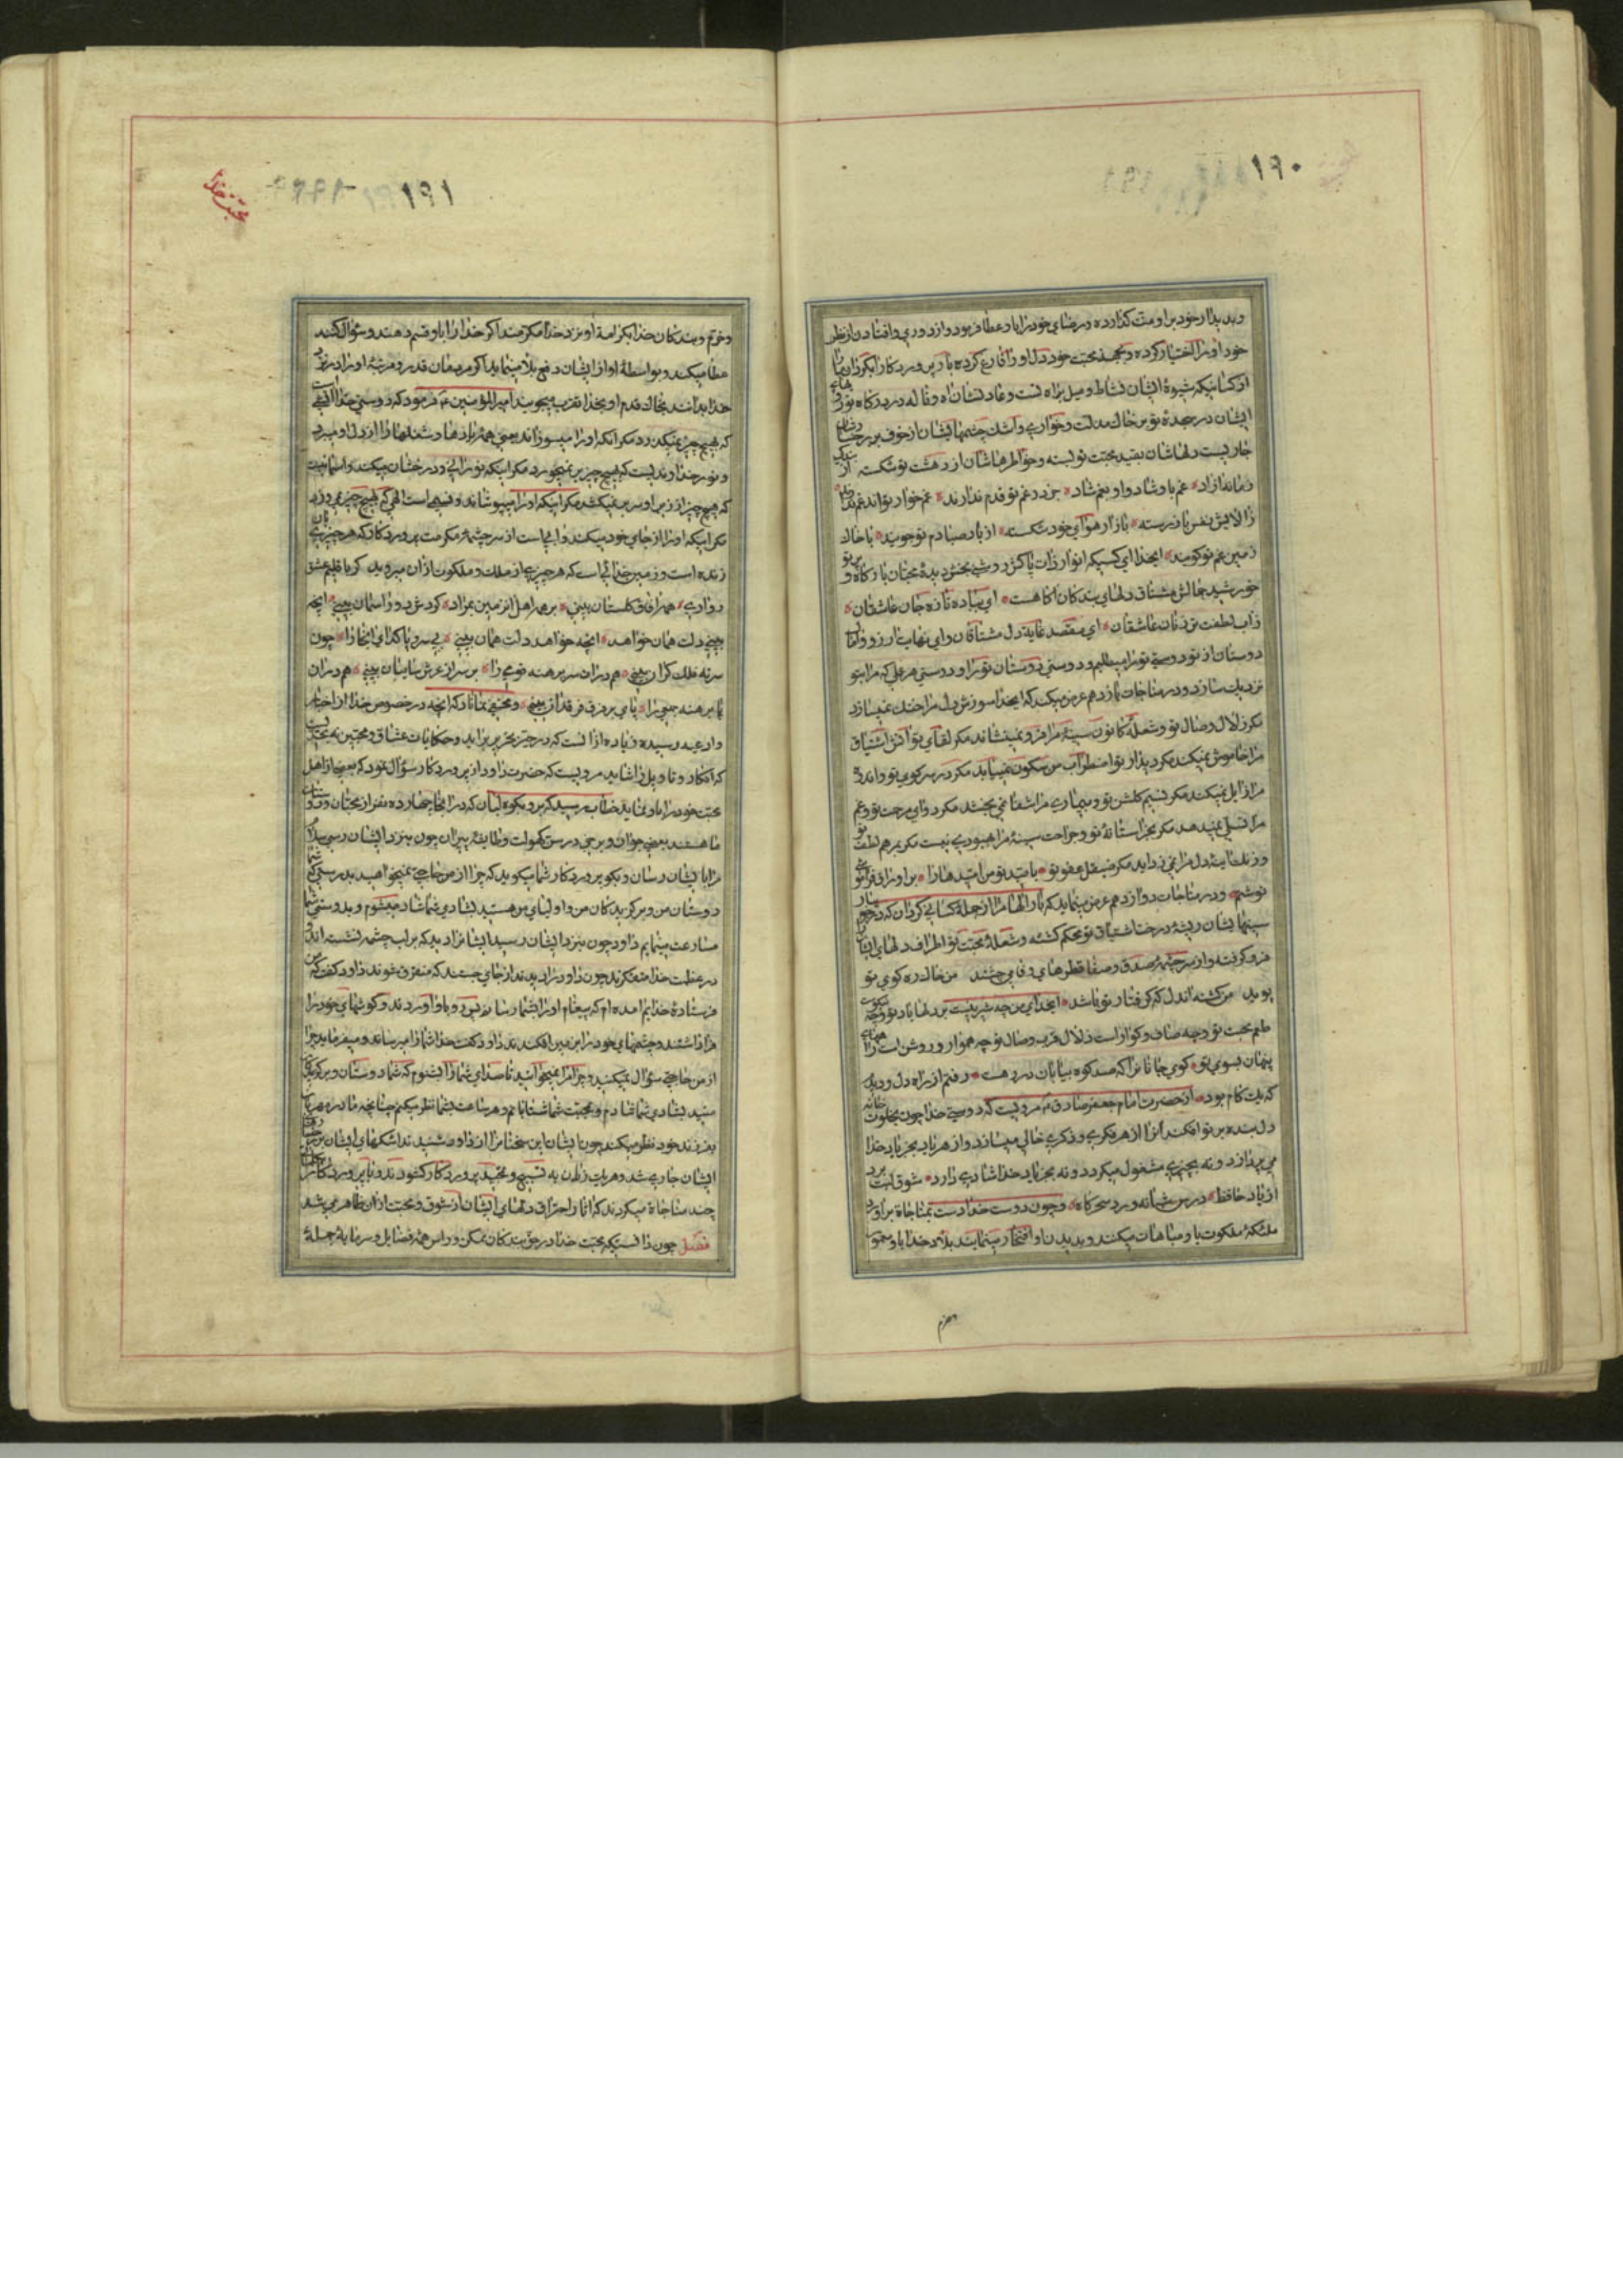 ۱۹۰
و بدیدار خود بر او منت گذارده و رضای خود را باو عطا فرموده و از دوری و افتادن از نظر
خود او را اختیار کرده و بجهة محبت خود دل او را فارغ کرده بار پروردکارا بکردان ما را
از کسانیکه شیوهٔ ایشان نشاط و میل براه تست و عادتشان آه و ناله در درکاه تو
ایشان در سجدهٔ تو بر خاک مذلت و خواری و اشک چشمهای ایشان از خوف بر رخسارشان
جاریست دلهاشان بقید محبت تو بسته و خواطرهاشان از دهشت تو شکسته از بندگی
زمانه آزاد غم با او شاد و او بغم شاد جز در غم تو قدم ندارند غم خوار تو اند غم ندارند
ز الایش نفس باز رسته بازار هوای خود شکسته از باد صبا دم تو جویند با خاک
زمین غم تو کویند ایخدا ای کسیکه انوار ذات پاکش روشنی بخش دیدهٔ محبان بارکاه و پرتو
خورشید جمالش مشتاق دلهای بندکان آکاهست ای بیاد تو تازه جان عاشقان
ز آب لطفت تر زبان عاشقان ای مقصد غایة دل مشتاقان و ای نهایت ارزو و آمال
دوستان از تو دوستی تو را میطلبم و دوستی دوستان تو را و دوستی هر عملی که مرا بتو
نزدیک سازد و در مناجات یازدهم عرض میکند که ایخدا سوزش دل مرا خنک نمیسازد
مکر زلال وصال تو و شعلهٔ کانون سینهٔ مرا فرو نمینشاند مکر لقای تو آتش اشتیاق
مرا خاموش نمیکند مکر دیدار تو اضطراب من سکون نمییابد مکر در سر کوی تو و اندوه
مرا زایل نمیکند مکر نسیم کلشن تو و بیماری مرا شفا نمی بخشد مکر دوای مرحمت تو و غم
مرا تسلی نمیدهد مکر بجز آستانهٔ تو و جراحت سینهٔ مرا بهبودی نیست مکر بمرهم لطف تو
و زنک آینهٔ دل مرا نمی زداید مکر صیقل عفو تو
و در مناجات دوازدهم عرض مینماید که بار الها مرا از جملهٔ کسانی کردان که در
سینهای ایشان ریشهٔ درخت اشتیاق تو محکم کشته و شعلهٔ محبت تو اطراف دلهای ایشان را
فرو کرفته و از سرچشمهٔ صدق و صفا قطرهای وفا می چشند من خاک ره کوی تو
پویم من کشته آن دل که کرفتار تو باشد ایخدای من چه شیرینست بر دلها یاد تو و چه نیکوست
طعم محبت تو و چه صاف و کواراست زلال قرب وصال تو چه هموار و روشن است راههای
پنهان بسوی تو کوی جانان را که صد کوه و بیابان در رهست رفتم از راه دل و دیدم
که یک کام بود از حضرت امام جعفر صادق ع مرویست که دوستی خدا چون بخلوت خانهٔ
دل بنده پرتو افکند او را از هر فکری و ذکری خالی میسازد و از هر یاد بجز یاد خدا
می پردازد و نه بچیزی مشغول میکردد و نه بجز یاد خدا شادی دارد شوق لبت برد
از یاد حافظ درس شبانه ورد سحرکاه و چون دوست خدا دست بمناجاة برآورد
ملئکهٔ ملکوت باو مباهات میکنند و بدیدن او افتخار مینمایند بلاد خدا باو معمور
و خرم
۱۹۱
محبت خدا
و خرم و بندکان خدا بکرامة او نزد خدا مکرمند اکر خدا را باو قسم دهند و سؤال کنند
عطا میکند و بواسطهٔ او از ایشان دفع بلا مینماید اکر مردمان قدر و مرتبهٔ او را در نزد
خدا بدانند بخاک قدم او بخدا تقرب میجویند امیر المؤمنین ع فرمود که دوستی خدا آتشیست
که بهیچ چیز نمیکذرد مکر آنکه او را میسوزاند یعنی همهٔ یادها و شعلها را از دل او میبرد
و نور خداوندیست که بهیچ چیز بر نمیخورد مکر اینکه نورانی و درخشان میکند و آسمانیست
که هیچ چیز از زیر او سر بر نمیکشد مکر اینکه او را میپوشاند و نسیمی است الهی که بهیچ چیز نمی وزد
مکر اینکه او را از جای خود میکند و آبی است از سرچشمهٔ مکرمت پروردکار که هر چیز بآن
زنده است و زمین خدائی است که هر چیزی از ملک و ملکوت از آن میروید کر باقلیم عشق
رو آری همه آفاق کلستان بینی بر همه اهل آن زمین بمراد کردش دور آسمان بینی آنچه
بینی دلت همان خواهد آنچه خواهد دلت همان بینی بی سر و پا کدای آنجا را چون
سر نه فلک کران بینی هم در آن سر برهنه قومی را بر سر از عرش سایبان بینی هم در آن
پا برهنه جمعی را پای بر فرق فرقدان بینی و مخفی نماناد که آنچه در خصوص خدا از اخبار
و ادعیه رسیده زیاده از آنست که در حیز تحریر براید و حکایات عشاق و محبین نه بحدیست
که انکار و تاویل را شاید مرویست که حضرت داود از پروردکار سؤال نمود که بعضی از اهل
محبت خود را باو نماید خطاب رسید که برو بکوه لبنان که در آنجا چهارده نفر از محبان و دوستان
ما هستند بعضی جوان و برخی در سن کهولت و طایفهٔ پیران چون بنزد ایشان رسی سلام
مرا بایشان رسان و بکو پروردکار شما میکوید که چرا از من حاجتی نمیخواهید بدرستیکه شما
دوستان من و برکزیدکان من و اولیای من هستید بشادی شما شاد میشوم و بدوستی شما
مسارعت مینمایم داود چون بنزد ایشان رسید ایشانرا دید که بر لب چشمه نشسته اند و
در عظمت خدا متفکرند چون داود را دیدند از جای جستند که متفرق شوند داود کفت که من
فرستادهٔ خدایم آمده ام که پیغام او را بشما رسانم پس رو باو آوردند و کوشهای خود را
فرا داشتند و چشمهای خود را بزمین افکندند داود کفت خدا شما را سلام میرساند و میفرماید چرا
از من حاجتی سؤال نمیکنید و چرا مرا نمیخوانید تا صدای شما را بشنوم که شما دوستان و برکزیدکان
منید بشادی شما شادم و بمحبت شما شتابانم و هر ساعت بشما نظر میکنم چنانچه مادر مهربان
بفرزند خود نظر میکند چون ایشان این سخنان را از داود شنیدند اشکهای ایشان بر رخسار
ایشان جاری شد و هر یک زبان به تسبیح و تمجید پروردکار کشودند و با پروردکار
چند مناجاة میکردند که آثار احتراق دلهای ایشان از شوق و محبت از آن ظاهر می شد
فصل چون دانستیکه محبت خدا در حق بندکان ممکن و راس همهٔ فضایل و سرمایهٔ جملهٔ